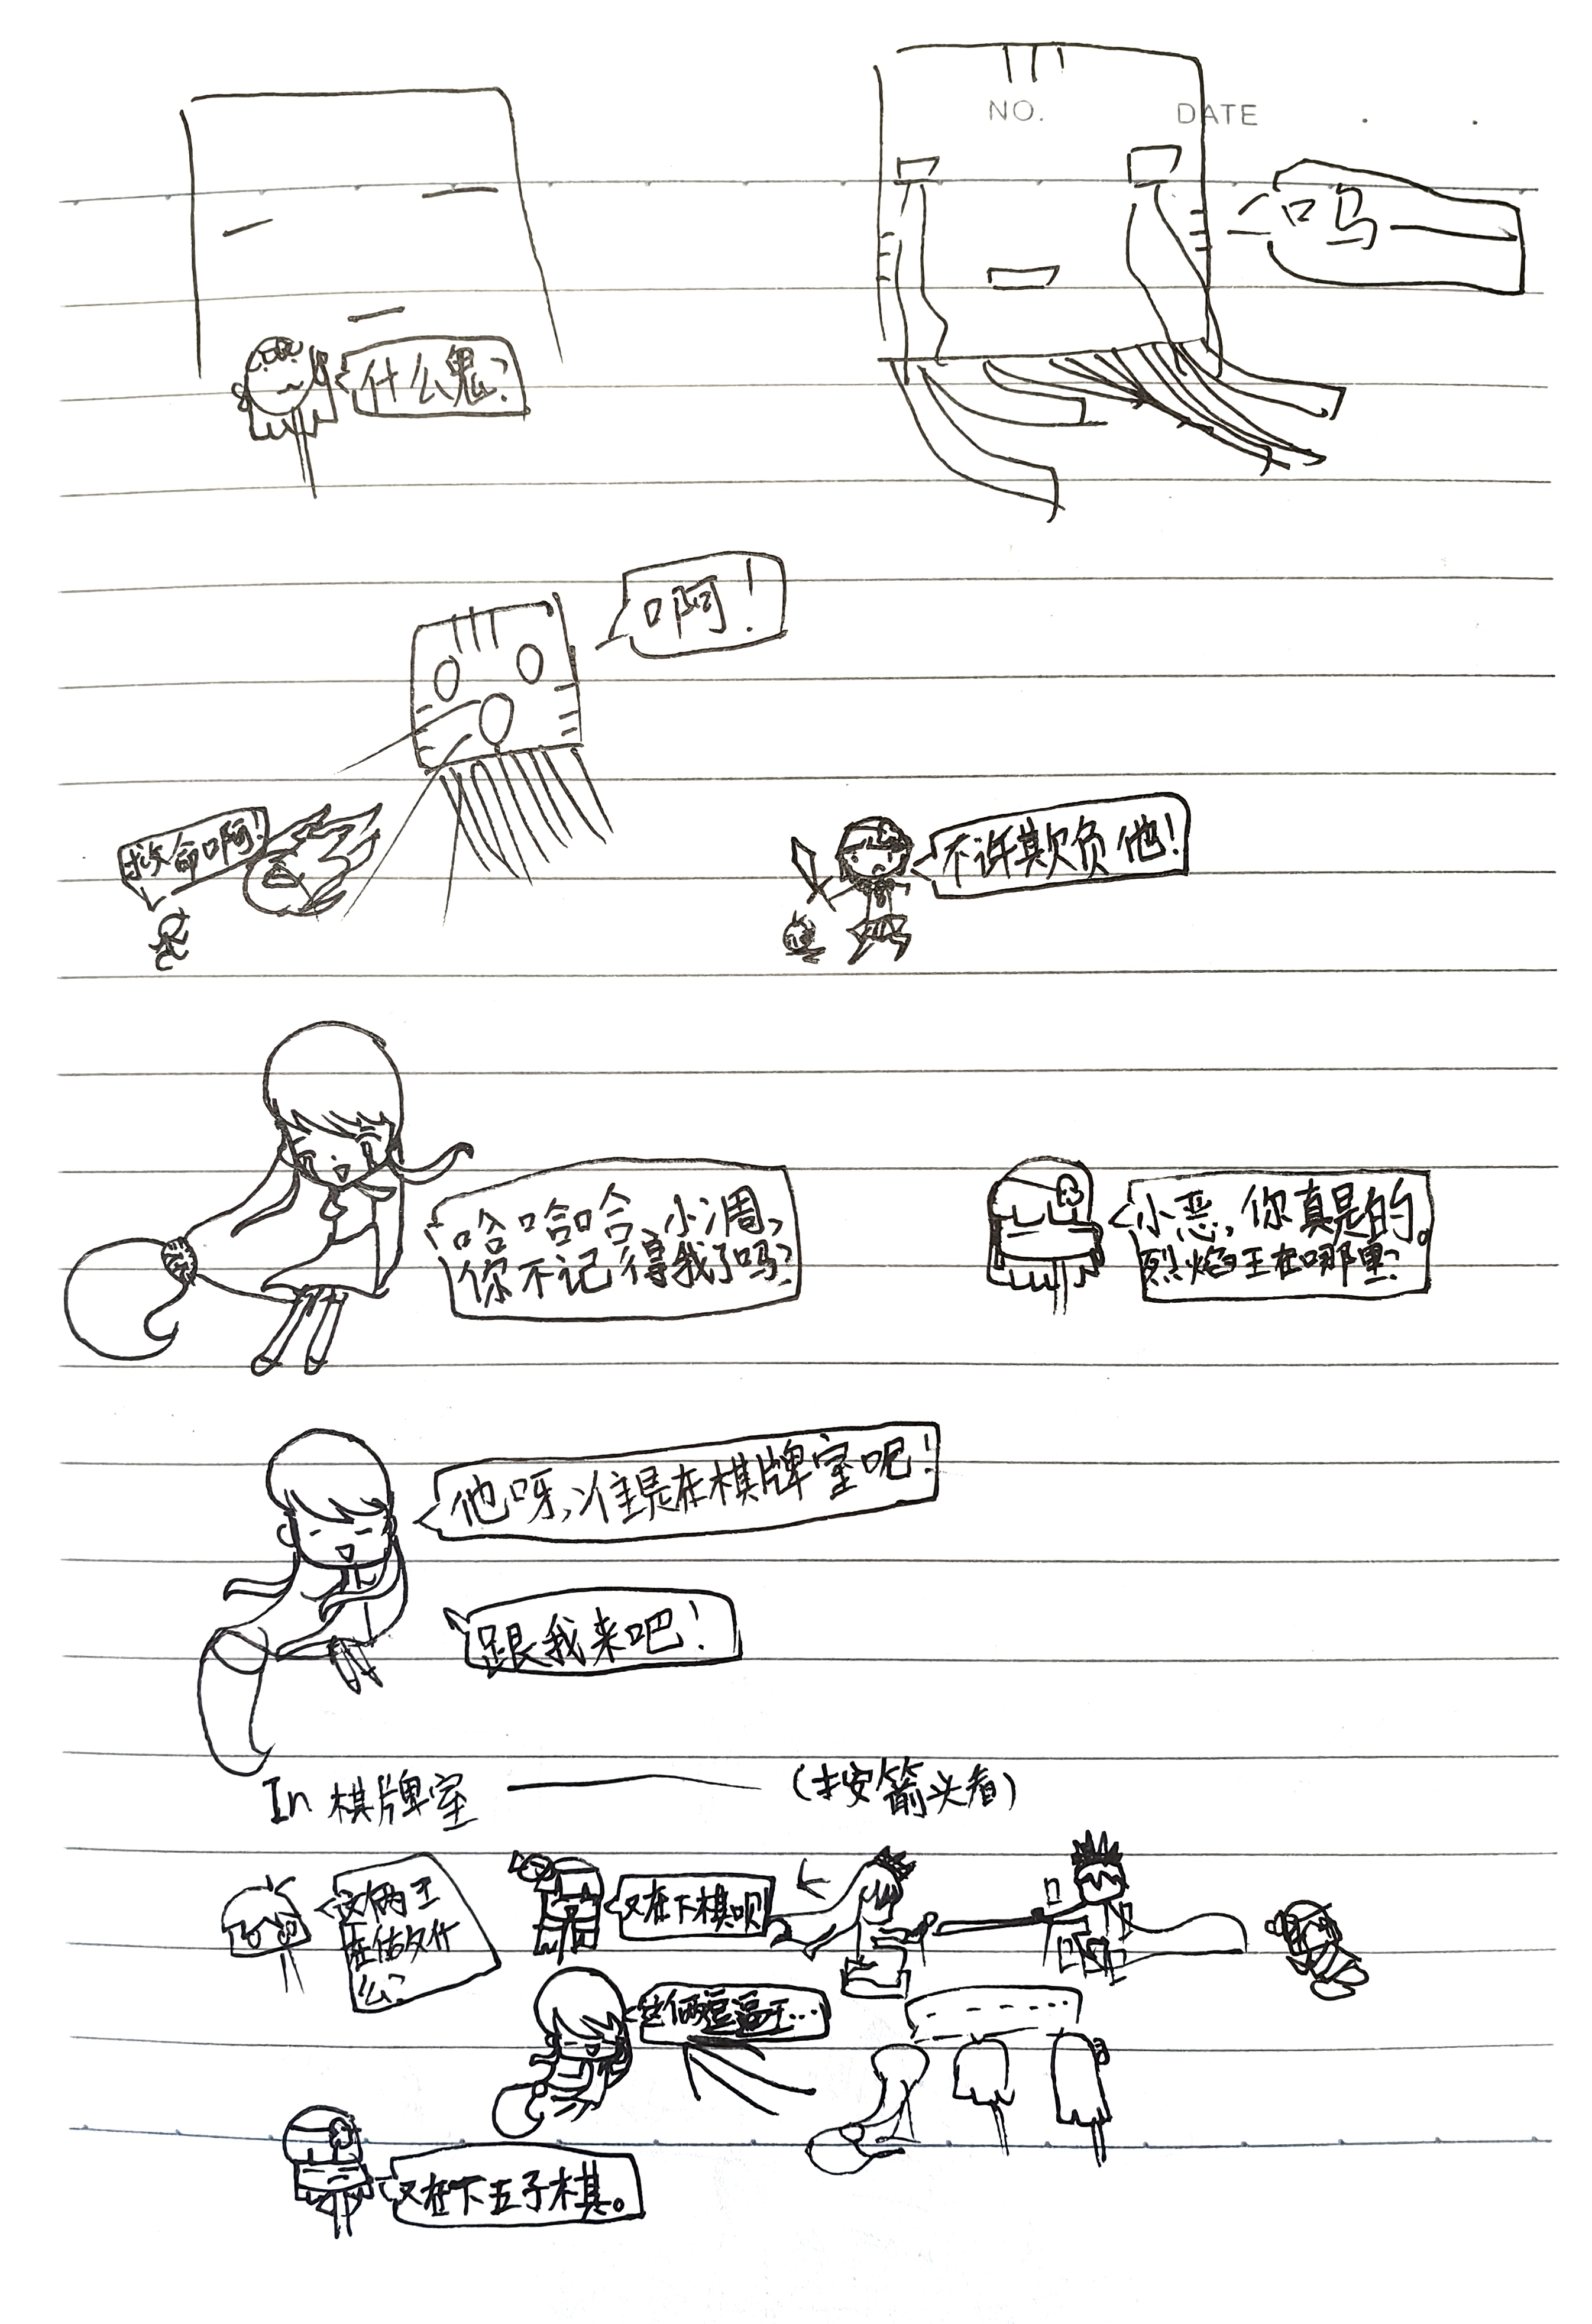 NO. DATE
呜——
什么鬼?
啊!
救命啊!
不许欺负他!
哈哈哈,小凋,
你不记得我了吗?
小恶,你真是的。
烈焰王在哪里?
他呀,准是在棋牌室呢!
跟我来吧!
In 棋牌室 —— (按箭头看)
这俩王
在估欠什
么?
又在下棋呗
这俩逗逼王…
------
又在下五子棋。